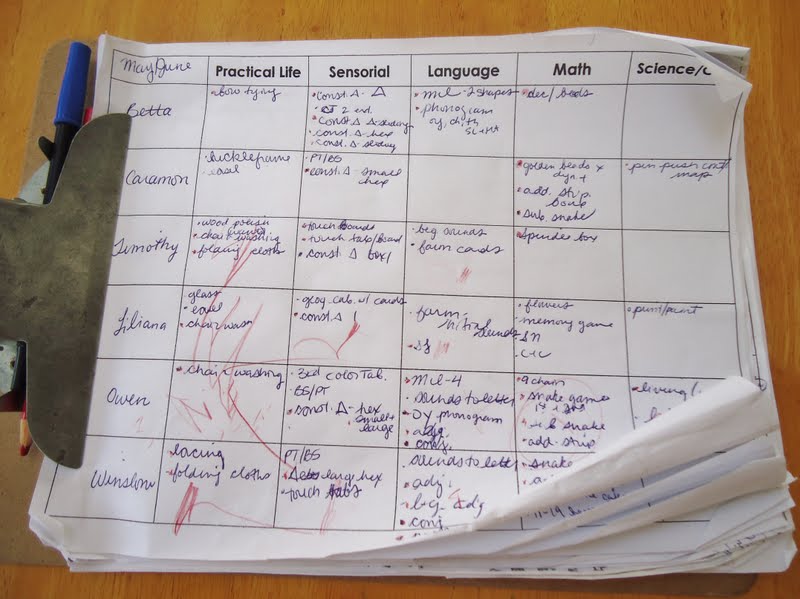 May/June Practical Life Sensorial Language Math Science/C
Betta
bow tying
const. Δ - Δ
2 ext.
const Δ Δ sliding
const. Δ hex
const. Δ sliding
mil - 2 shapes
phonogram
oy, ch, th
dec / beads
Caramon
buckleframe
easel
PT/BS
const. Δ - small
hex
golden beads x
dyn +
add. strip
board
sub. snake
pin push cont.
map
Timothy
wood polish
chair washing
folding cloths
touch boards
touch tabs/board
const. Δ box 1
beg sounds
farm cards
spindle box
Liliana
glass
easel
chair wash
geog. cab. w/ cards
const. Δ 1
farm,
initial
sounds
flowers
memory game
SN
C+C
print/paint
Owen
chair washing
3rd color Tab.
BS/PT
const. Δ - hex
small +
large
Mil - 4
sounds to letter
oy phonogram
adj
conj.
9 chain
snake games
snake
add. strip
living /
Winslow
lacing
folding cloths
PT/BS
large hex
touch tabs
sounds to letter
adj.
log. adj
conj.
snake
11-19